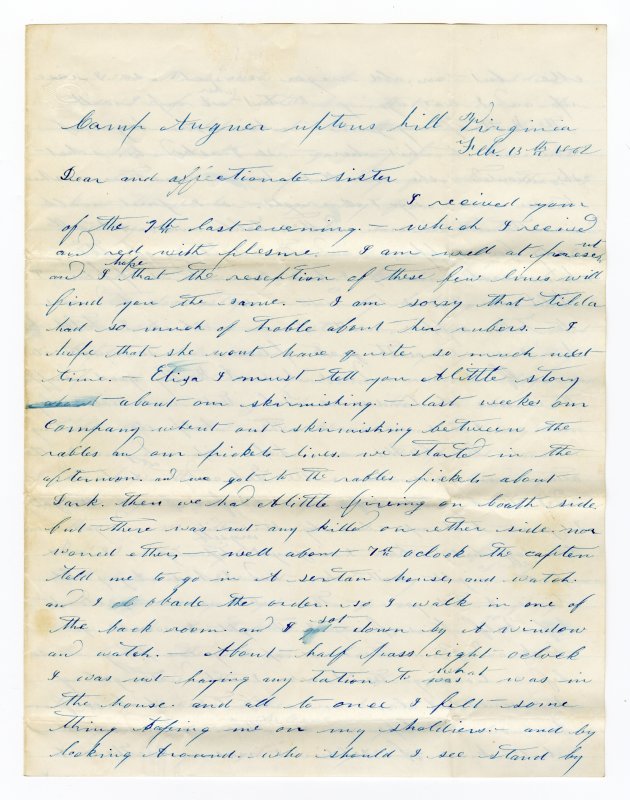 Camp Augner uptons hill Virginia
Feb. 13th 1862
Dear and affectionate sister
I recived your
of the 9th last evening. — which I recived
and red with plesure. — I am well at present
and I hope that the reseption of these few lines will
find you the same. — I am sorry that tilda
had so much of troble about her rubers. — I
hope that she wont have quite so much next
time. — Eliza I must tell you Alittle story
about our skirmishing. — last weeke our
Company whent out skirmishing between the
rables an our pickets lines. we started in the
afternoon. and we got to the rables pickets about
Dark. then we had Alittle fireing on boath side.
but there was not any killed on ether side. nor
woned ether, — well about 7th oclock the capten
told me to go in A sertan houses and watch.
and I obade the order. so I walk in one of
the back room and I sat down by A window
an watch. — About half pass eight oclock
I was not paying any tation to what was in
the house. and all to once I felt some
thing taping me on my sholdiers. — and by
looking Around. who should I see stand by